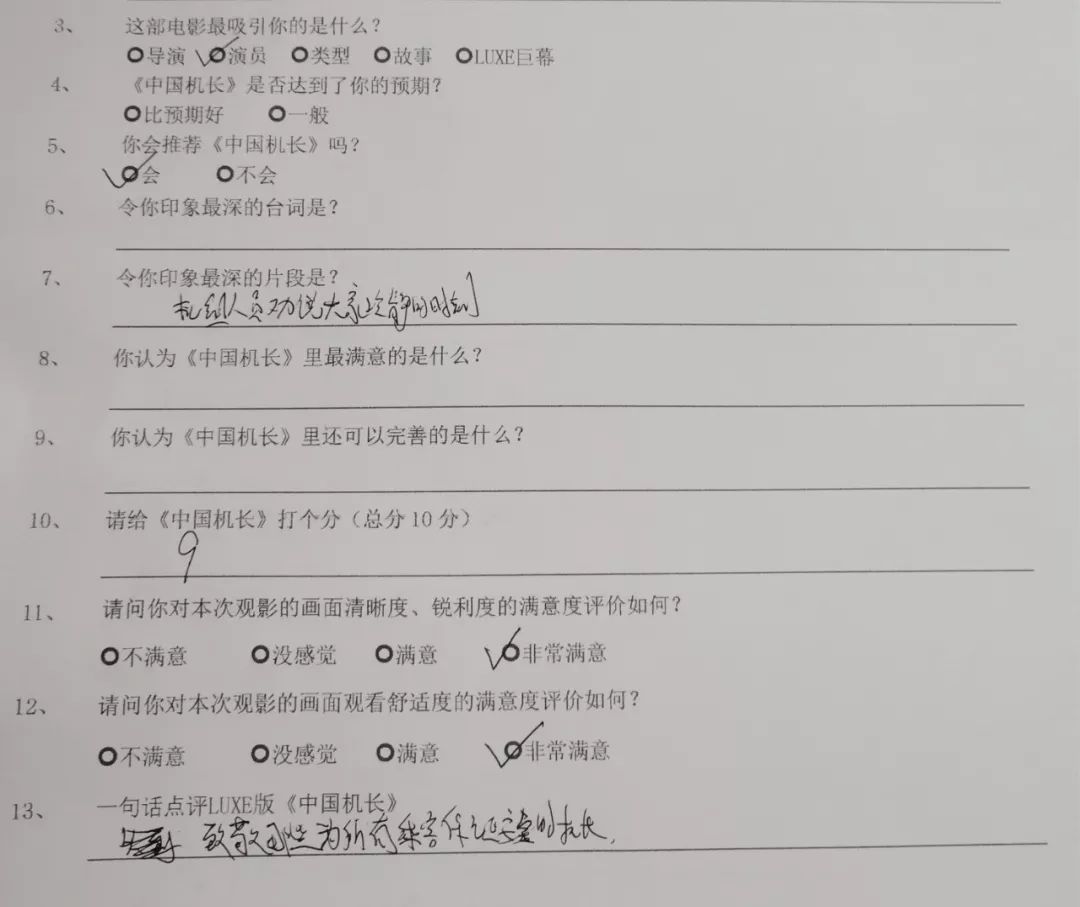 3、 这部电影最吸引你的是什么？
导演 演员 类型 故事 LUXE巨幕
4、 《中国机长》是否达到了你的预期？
比预期好 一般
5、 你会推荐《中国机长》吗？
会 不会
6、 令你印象最深的台词是？
7、 令你印象最深的片段是？
机组人员劝说大家冷静的时刻
8、 你认为《中国机长》里最满意的是什么？
9、 你认为《中国机长》里还可以完善的是什么？
10、 请给《中国机长》打个分（总分10分）
9
11、 请问你对本次观影的画面清晰度、锐利度的满意度评价如何？
不满意 没感觉 满意 非常满意
12、 请问你对本次观影的画面观看舒适度的满意度评价如何？
不满意 没感觉 满意 非常满意
13、 一句话点评LUXE版《中国机长》
致敬那些为所有乘客保证安全的机长.